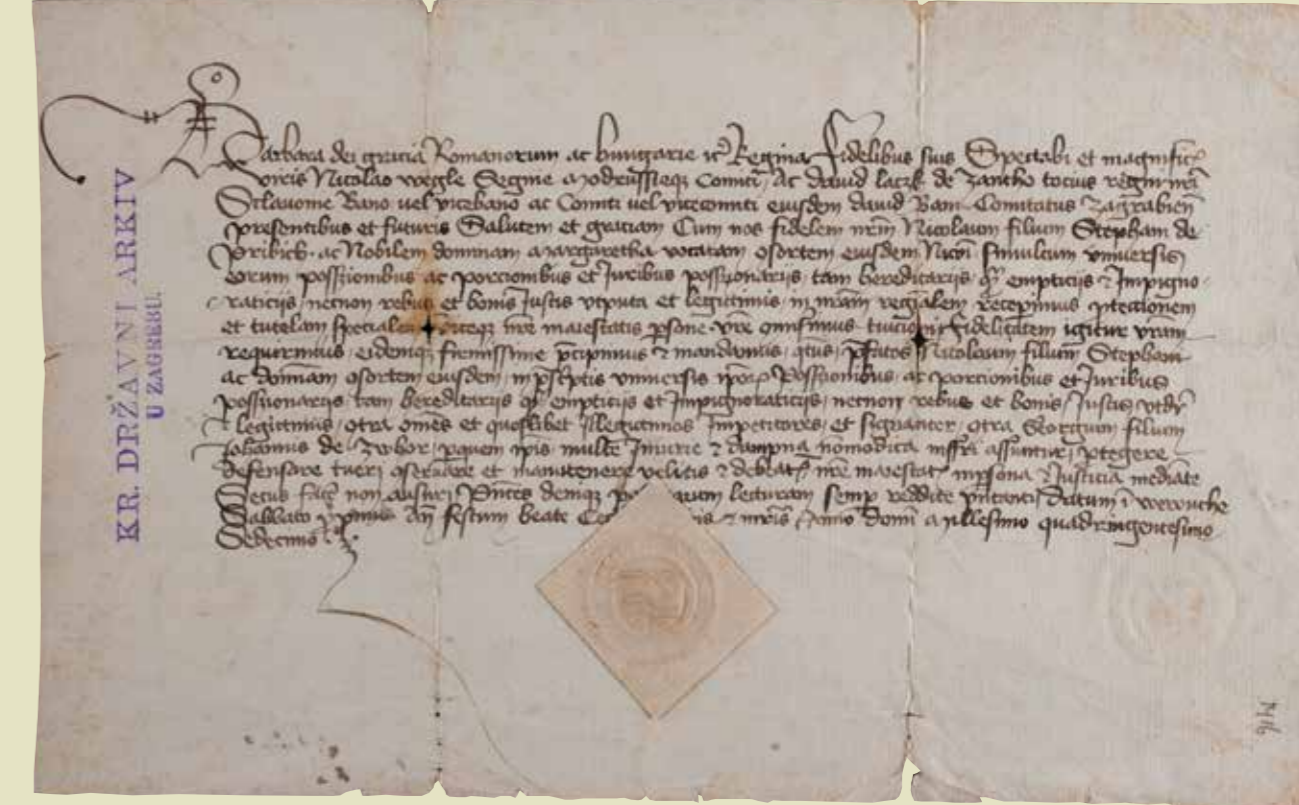 Barbara dei gracia Romanorum ac hungarie &c Regina Fidelibus suis Spectabi et magnific
viris Nicolao vegle Segnie Modrussieque Comiti Ac david laczk de zantho tocius regni nri
Sclauonie Bano uel vicebano ac Comiti uel vicecomiti eiusdem david Bani Comitatus zagrabien
presentibus et futuris Salutem et graciam Cum nos fidelem nrm Nicolaum filium Stephani de
Pribich ac Nobilem dominam Margaretha vocatam osortem eiusdem Nicoi simulcum vniuersis
eorum possessionibus ac porcionibus et Juribus possessionarijs tam hereditarijs empticijs & Impigno
raticijs necnon rebus et bonis Justis vtputa et legittimis in nram regialem recepimus pteccionem
et tutelam specialem nre maiestatis psone vre omisimus fidelitatem igitur vram
requirimus eidemque firmissime pcipimus & mandamus pfatos Nicolaum filium Stephani
ac dominam osortem eiusdem in pscptis vniuersis ipor possessionibus ac porcionibus et Juribus
possessionarijs tam hereditarijs empticijs et Impignoraticijs necnon rebus et bonis Justis
legittimis otra omes et quoslibet Illegittimos Impetitores et signanter otra Georgium filium
Johannis de zwhor pquem ipis multe Iniurie & dampna inferri assuntur ptegere
defensare tueri oseruare et manutenere velitis & debeatis nre maiestat inpsona & Justicia mediate
Secus facere non ausuri Pntes demque lecturam semp reddite pntanti datum i werouche
Sabbato pximo an festum beate & mris Anno domi Millesimo quadringentesimo
Sedecimo
KR. DRŽAVNI ARKIV
U ZAGREBU.